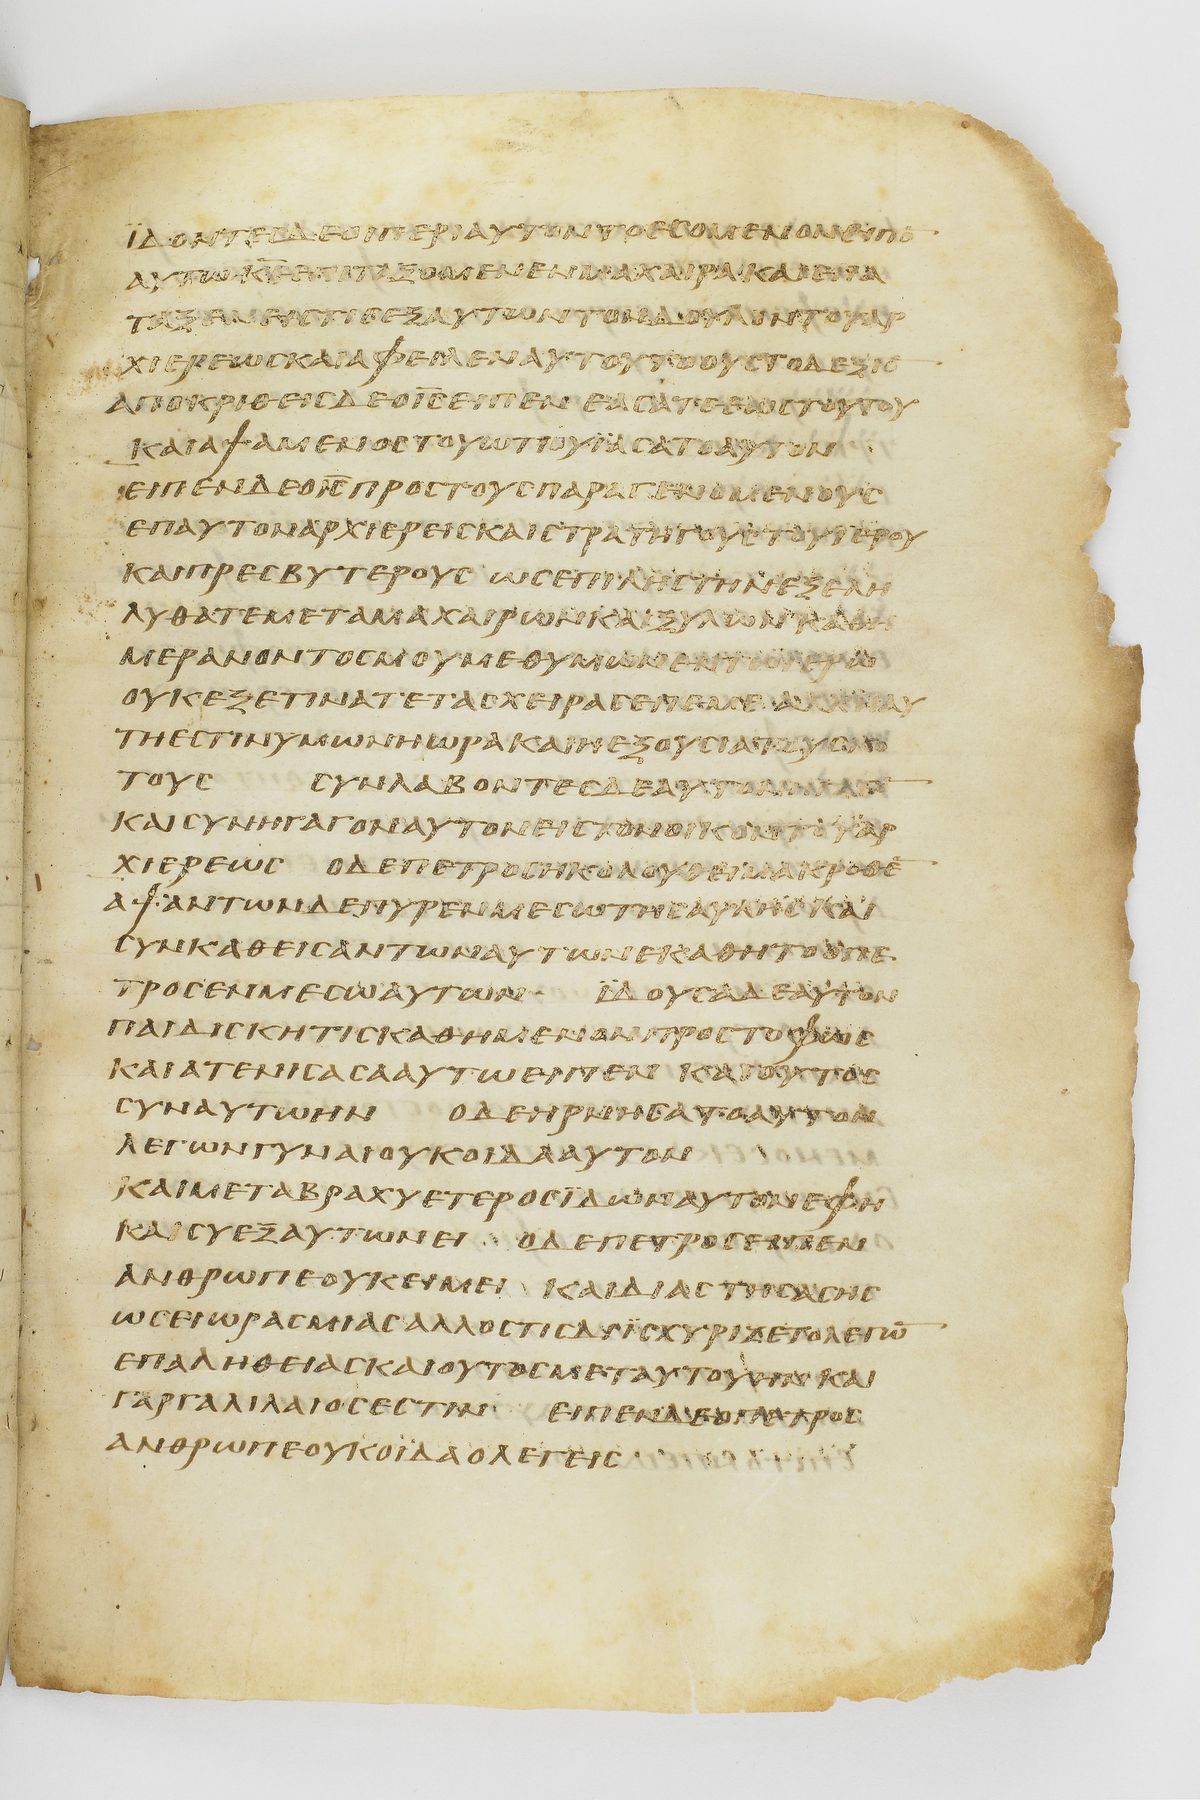 ΪΔΟΝΤΕCΔΕΟΙΠΕΡΙΑΥΤΟΝΤΟΕCΟΜΕΝΟΝΕΙΠΟ̅
ΑΥΤΩΚ̅Ε̅ΕΙΠΑΤΑΞΟΜΕΝΕΝΜΑΧΑΙΡΑΚΑΙΕΠΑ
ΤΑΞΕΝΕΙCΤΙCΕΞΑΥΤΩΝΤΟΝΔΟΥΛΟΝΤΟΥΑΡ
ΧΙΕΡΕΩCΚΑΙΑΦΕΙΛΕΝΑΥΤΟΥΤΟΟΥCΤΟΔΕΞΙΟ̅
ΑΠΟΚΡΙΘΕΙCΔΕΟΙ̅C̅ΕΙΠΕΝ ΕΑCΑΤΕΕΩCΤΟΥΤΟΥ
ΚΑΙΑΨΑΜΕΝΟCΤΟΥΩΤΙΟΥΪΑCΑΤΟΑΥΤΟΝ
ΕΙΠΕΝΔΕΟΙ̅C̅ΠΡΟCΤΟΥCΠΑΡΑΓΕΝΟΜΕΝΟΥC
ΕΠΑΥΤΟΝΑΡΧΙΕΡΕΙCΚΑΙCΤΡΑΤΗΓΟΥCΤΟΥΙΕΡΟΥ
ΚΑΙΠΡΕCΒΥΤΕΡΟΥC ΩCΕΠΙΛΗCΤΗΝΕΞΕΛΗ
ΛΥΘΑΤΕΜΕΤΑΜΑΧΑΙΡΩΝΚΑΙΞΥΛΩΝΚΑΘΗ
ΜΕΡΑΝΟΝΤΟCΜΟΥΜΕΘΥΜΩΝΕΝΤΩΙΕΡΩ
ΟΥΚΕΞΕΤΙΝΑΤΕΤΑCΧΕΙΡΑCΕΠΕΜΕ ΑΛΛΑΥ
ΤΗΕCΤΙΝΥΜΩΝΗΩΡΑΚΑΙΗΕΞΟΥCΙΑΤΟΥCΚΟ
ΤΟΥC CΥΝΛΑΒΟΝΤΕCΔΕΑΥΤΟΝΗΓΑΓΟ̅
ΚΑΙCΥΝΗΓΑΓΟΝΑΥΤΟΝΕΙCΤΟΝΟΙΚΟΝΤΟΥΑΡ
ΧΙΕΡΕΩC ΟΔΕΠΕΤΡΟCΗΚΟΛΟΥΘΕΙΜΑΚΡΟΘΕ̅
ΑΨΑΝΤΩΝΔΕΠΥΡΕΝΜΕCΩΤΗCΑΥΛΗCΚΑΙ
CΥΝΚΑΘΕΙCΑΝΤΩΝΑΥΤΩΝΕΚΑΘΗΤΟΟΠΕ
ΤΡΟCΕΝΜΕCΩΑΥΤΩΝ ΪΔΟΥCΑΔΕΑΥΤΟΝ
ΠΑΙΔΙCΚΗΤΙCΚΑΘΗΜΕΝΟΝΠΡΟCΤΟΦΩC
ΚΑΙΑΤΕΝΙCΑCΑΑΥΤΩΕΙΠΕΝ ΚΑΙΟΥΤΟC
CΥΝΑΥΤΩΗΝ ΟΔΕΗΡΝΗCΑΤΟΑΥΤΟΝ
ΛΕΓΩΝΓΥΝΑΙΟΥΚΟΙΔΑΑΥΤΟΝ
ΚΑΙΜΕΤΑΒΡΑΧΥΕΤΕΡΟCΪΔΩΝΑΥΤΟΝΕΦΗ
ΚΑΙCΥΕΞΑΥΤΩΝΕΙ ΟΔΕΠΕΤΡΟCΕΙΠΕΝ
ΑΝΘΡΩΠΕΟΥΚΕΙΜΕΙ ΚΑΙΔΙΑCΤΗCΑCΗC
ΩCΕΙΩΡΑCΜΙΑCΑΛΛΟCΤΙCΔΥΪCΧΥΡΙΖΕΤΟΛΕΓΩ̅
ΕΠΑΛΗΘΕΙΑCΚΑΙΟΥΤΟCΜΕΤΑΥΤΟΥΗΝΚΑΙ
ΓΑΡΓΑΛΙΛΑΙΟCΕCΤΙΝ ΕΙΠΕΝΔΕΟΠΕΤΡΟC
ΑΝΘΡΩΠΕΟΥΚΟΪΔΑΟΛΕΓΕΙC